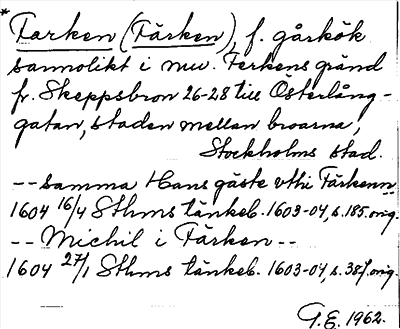 * Farken (Färken), f. gårkök
sannolikt i nuv. Ferkens gränd
fr. Skeppsbron 26-28 till Österlång-
gatan, staden mellan broarna,
Stockholms stad.
-- samma Hans gäste vthi Färkenn
1604 16/4 Sthms tänkeb. 1603-04, s. 185. orig.
-- Michil i Färken --
1604 27/1 Sthms tänkeb. 1603-04, s. 387. orig.
G.E. 1962.